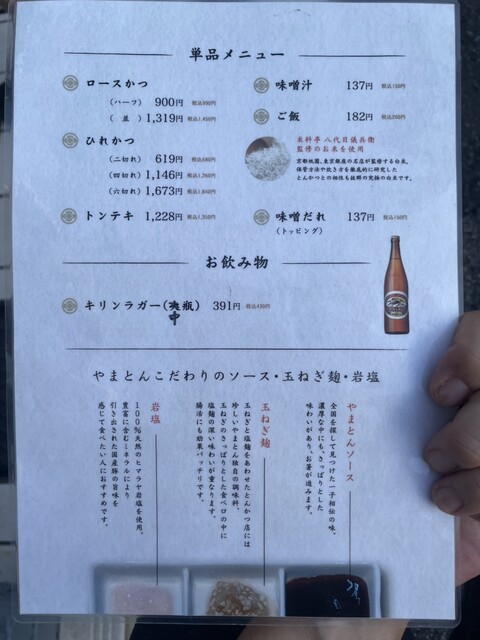 単品メニュー
ロースかつ
(ハーフ) 900円 税込990円
(並) 1,319円 税込1,450円
ひれかつ
(二切れ) 619円 税込680円
(四切れ) 1,146円 税込1,260円
(六切れ) 1,673円 税込1,840円
トンテキ 1,228円 税込1,350円
味噌汁 137円 税込150円
ご飯 182円 税込200円
米料亭 八代目儀兵衛
監修のお米を使用
京都祇園、東京銀座の名店が監修する白米。
保管方法や炊き方を徹底的に研究した
とんかつとの相性も抜群の究極の白米です。
味噌だれ 137円 税込150円
(トッピング)
お飲み物
キリンラガー(瓶) 391円 税込430円
中
やまとんこだわりのソース・玉ねぎ麹・岩塩
やまとんソース
全国を探して見つけた一子相伝の味。
濃厚な中にも、さっぱりとした
味わいがあり、お箸が進みます。
玉ねぎ麹
玉ねぎと塩麹をあわせたとんかつ店には
珍しいやまとん独自の調味料。
玉ねぎのさっぱりとした食べ口の中に
塩麹の深い味わいが重なります。
腸活にも効果バッチリです。
岩塩
100%天然のヒマラヤ岩塩を使用。
豊富に含むミネラルにより
引き出された国産豚の旨味を
感じて食べたい人におすすめです。